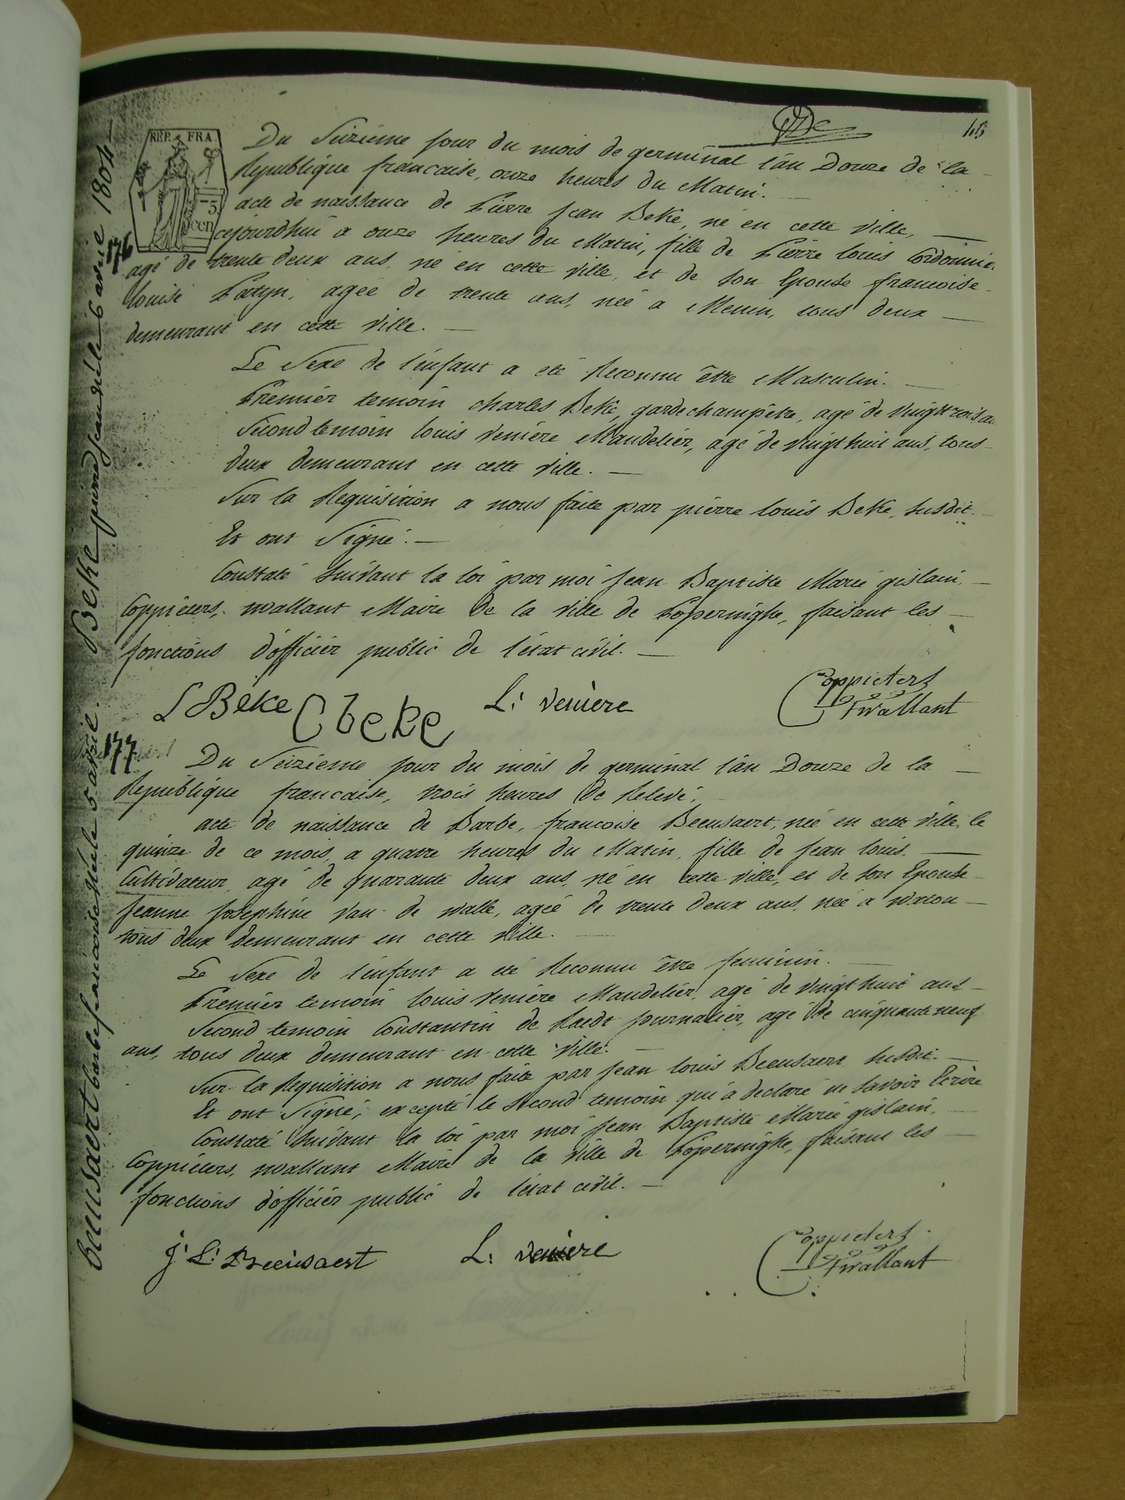 46
REP. FRA
5
cen
Du Seizieme jour du mois de germinal l'an Douze de la
Republique francaise, onze heures du Matin.
acte de naissance de Pierre Jean Beke, né en cette ville,
cejourdhui a onze heures du Matin, fille de Pierre louis Cordonnier
176
agé de trente deux ans, né en cette ville, et de son Epouse francoise
louise agée de trente ans, née a Menin, tous deux
demeurant en cette ville.
Le Sexe de l'enfant a été Reconnu être Masculin.
Premier temoin charles Beke, gardechampêtre, agé de
Second temoin louis veniere Maudelier, agé de vingthuit ans, tous
deux demeurant en cette ville.
Sur la Requisition a nous faite par pierre louis Beke, susdit.
Et ont Signé.
Constaté Suivant la loi par moi Jean Baptiste Marie gislain,
Coppieters, wallant Maire de la ville de Poperinghe, faisant les
fonctions d'officiér public de l'état civil.
L Beke C beke L: veniere Coppieters
Twallant
Beke pierre jean né le 6 avril 1804
177
Du Seizieme jour du mois de germinal l'an Douze de la
Republique francaise, trois heures de Relevé,
acte de naissance de Barbe, francoise Beeusaert, née en cette ville, le
quinze de ce mois, a quatre heures du Matin, fille de Jean louis.
Cultivateur, agé de quarante deux ans, né en cette ville, et de son Epouse
Jeanne Josephine Van de walle, agée de trente deux ans, née a watou
tous deux demeurant en cette ville.
Le Sexe de l'enfant a été Reconnu être feminin.
Premier temoin louis veniere Maudelier, agé de vingthuit ans
Second temoin Constantin de Raedt journalier, agé de cinquanteneuf
ans, tous deux demeurant en cette ville.
Sur la Requisition a nous faite par Jean louis Beeusaert susdit.
Et ont Signé, excepté le second temoin qui a declaré ne savoir Ecrire
Constaté Suivant la loi par moi Jean Baptiste Marie gislain,
Coppieters, wallant Maire de la ville de Poperinghe, faisant les
fonctions d'officiér public de l'état civil.
J: L: Beeusaert L: veniere Coppieters
Twallant
beeusaert barbe francoise née le 5 avril